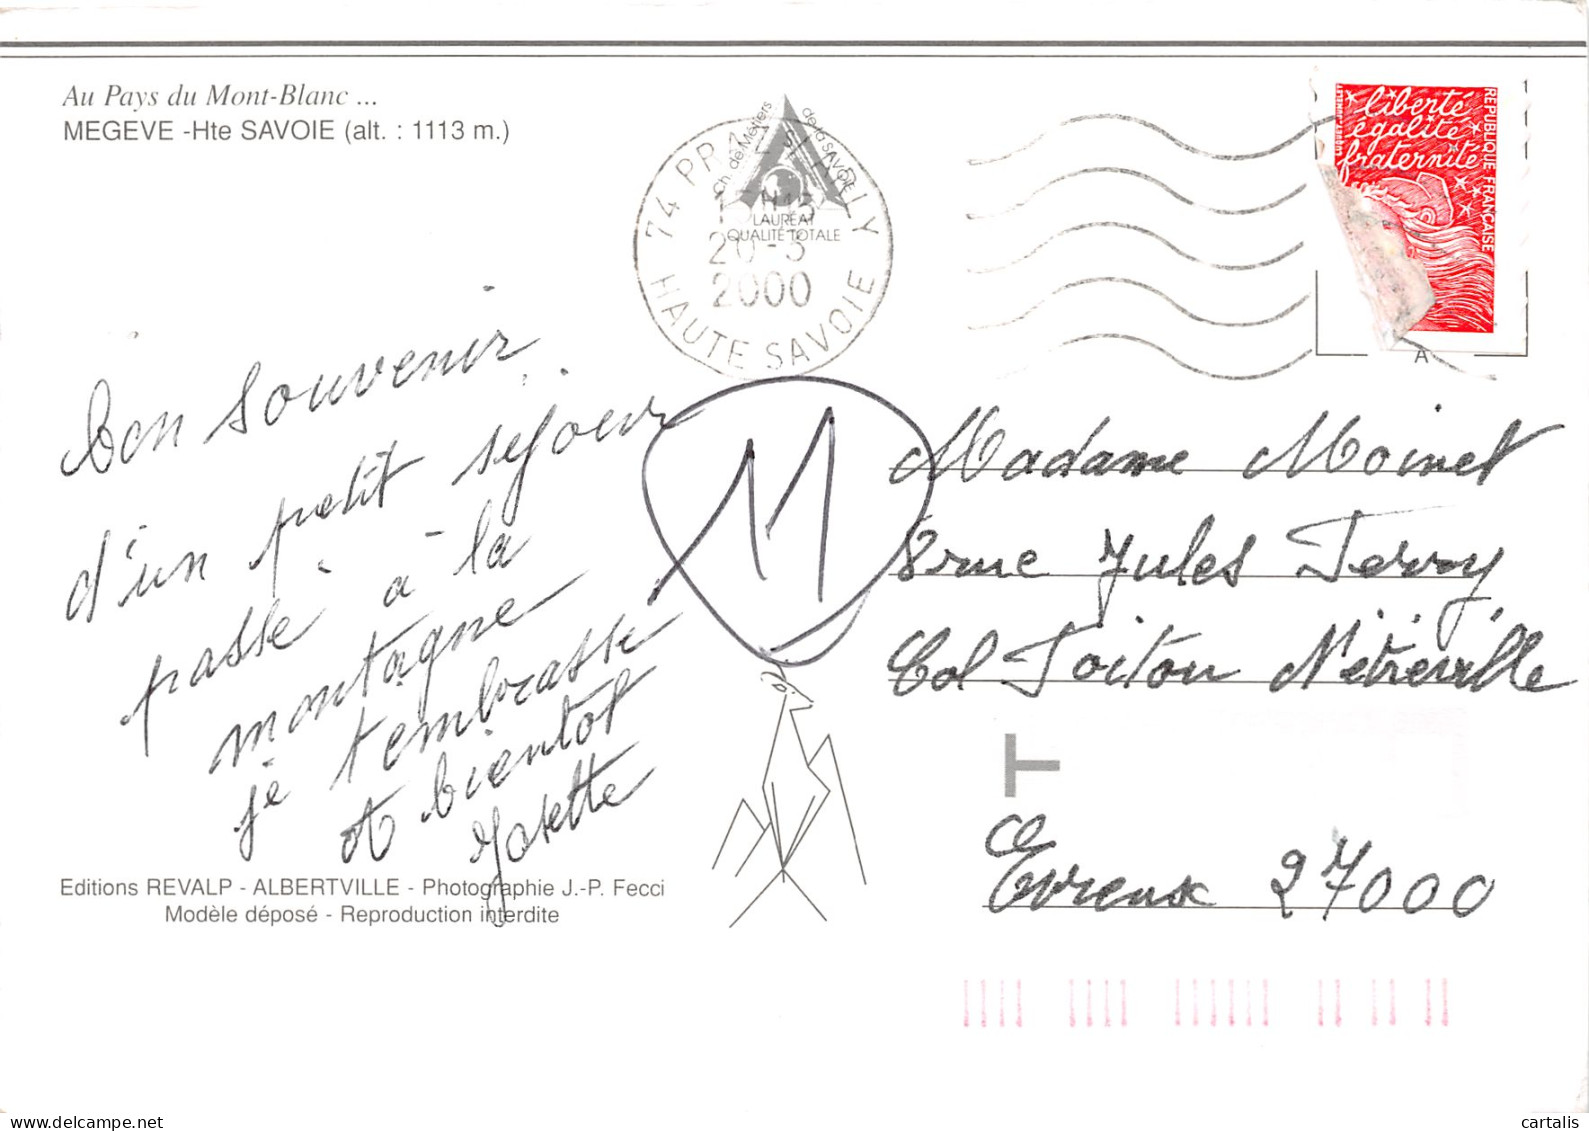 Au Pays du Mont-Blanc ...
MEGEVE -Hte SAVOIE (alt. : 1113 m.)
Ch. de Métiers
de la SAVOIE
LAURÉAT
QUALITÉ TOTALE
74 PRAZ S/ ARLY
15H45
20-3
2000
HAUTE SAVOIE
liberté
égalité
fraternité
REPUBLIQUE FRANÇAISE
1
1
1
1
A
Bon souvenir
d'un petit sejour
passé à la
montagne
je t embrasse
A bientot
Josette
M
Madame Moinet
8 rue Jules
Col Toitou Nétreville
T
Evreux 27000
Editions REVALP - ALBERTVILLE - Photographie J.-P. Fecci
Modèle déposé - Reproduction interdite
cartalis